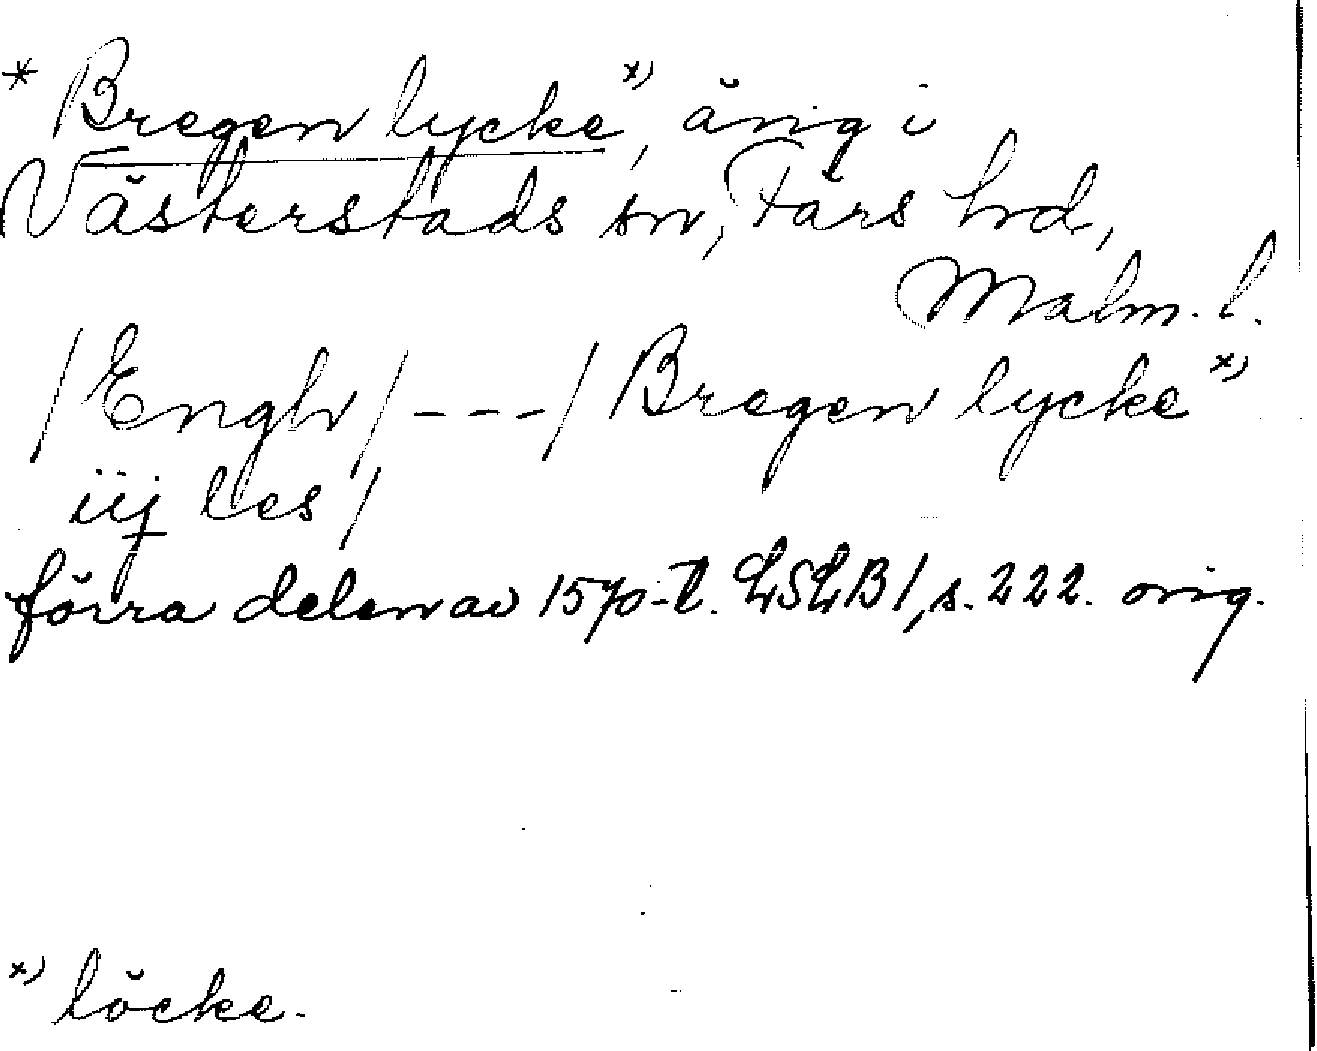 * Bregen lycke x), äng i
Västerstads sn, Färs hrd,
Malm. l.
/Engh/ - - - / Bregen lycke x)
iij les/
förra delen av 1570-t. LSLB 1, s. 222. orig.
x) löcke.